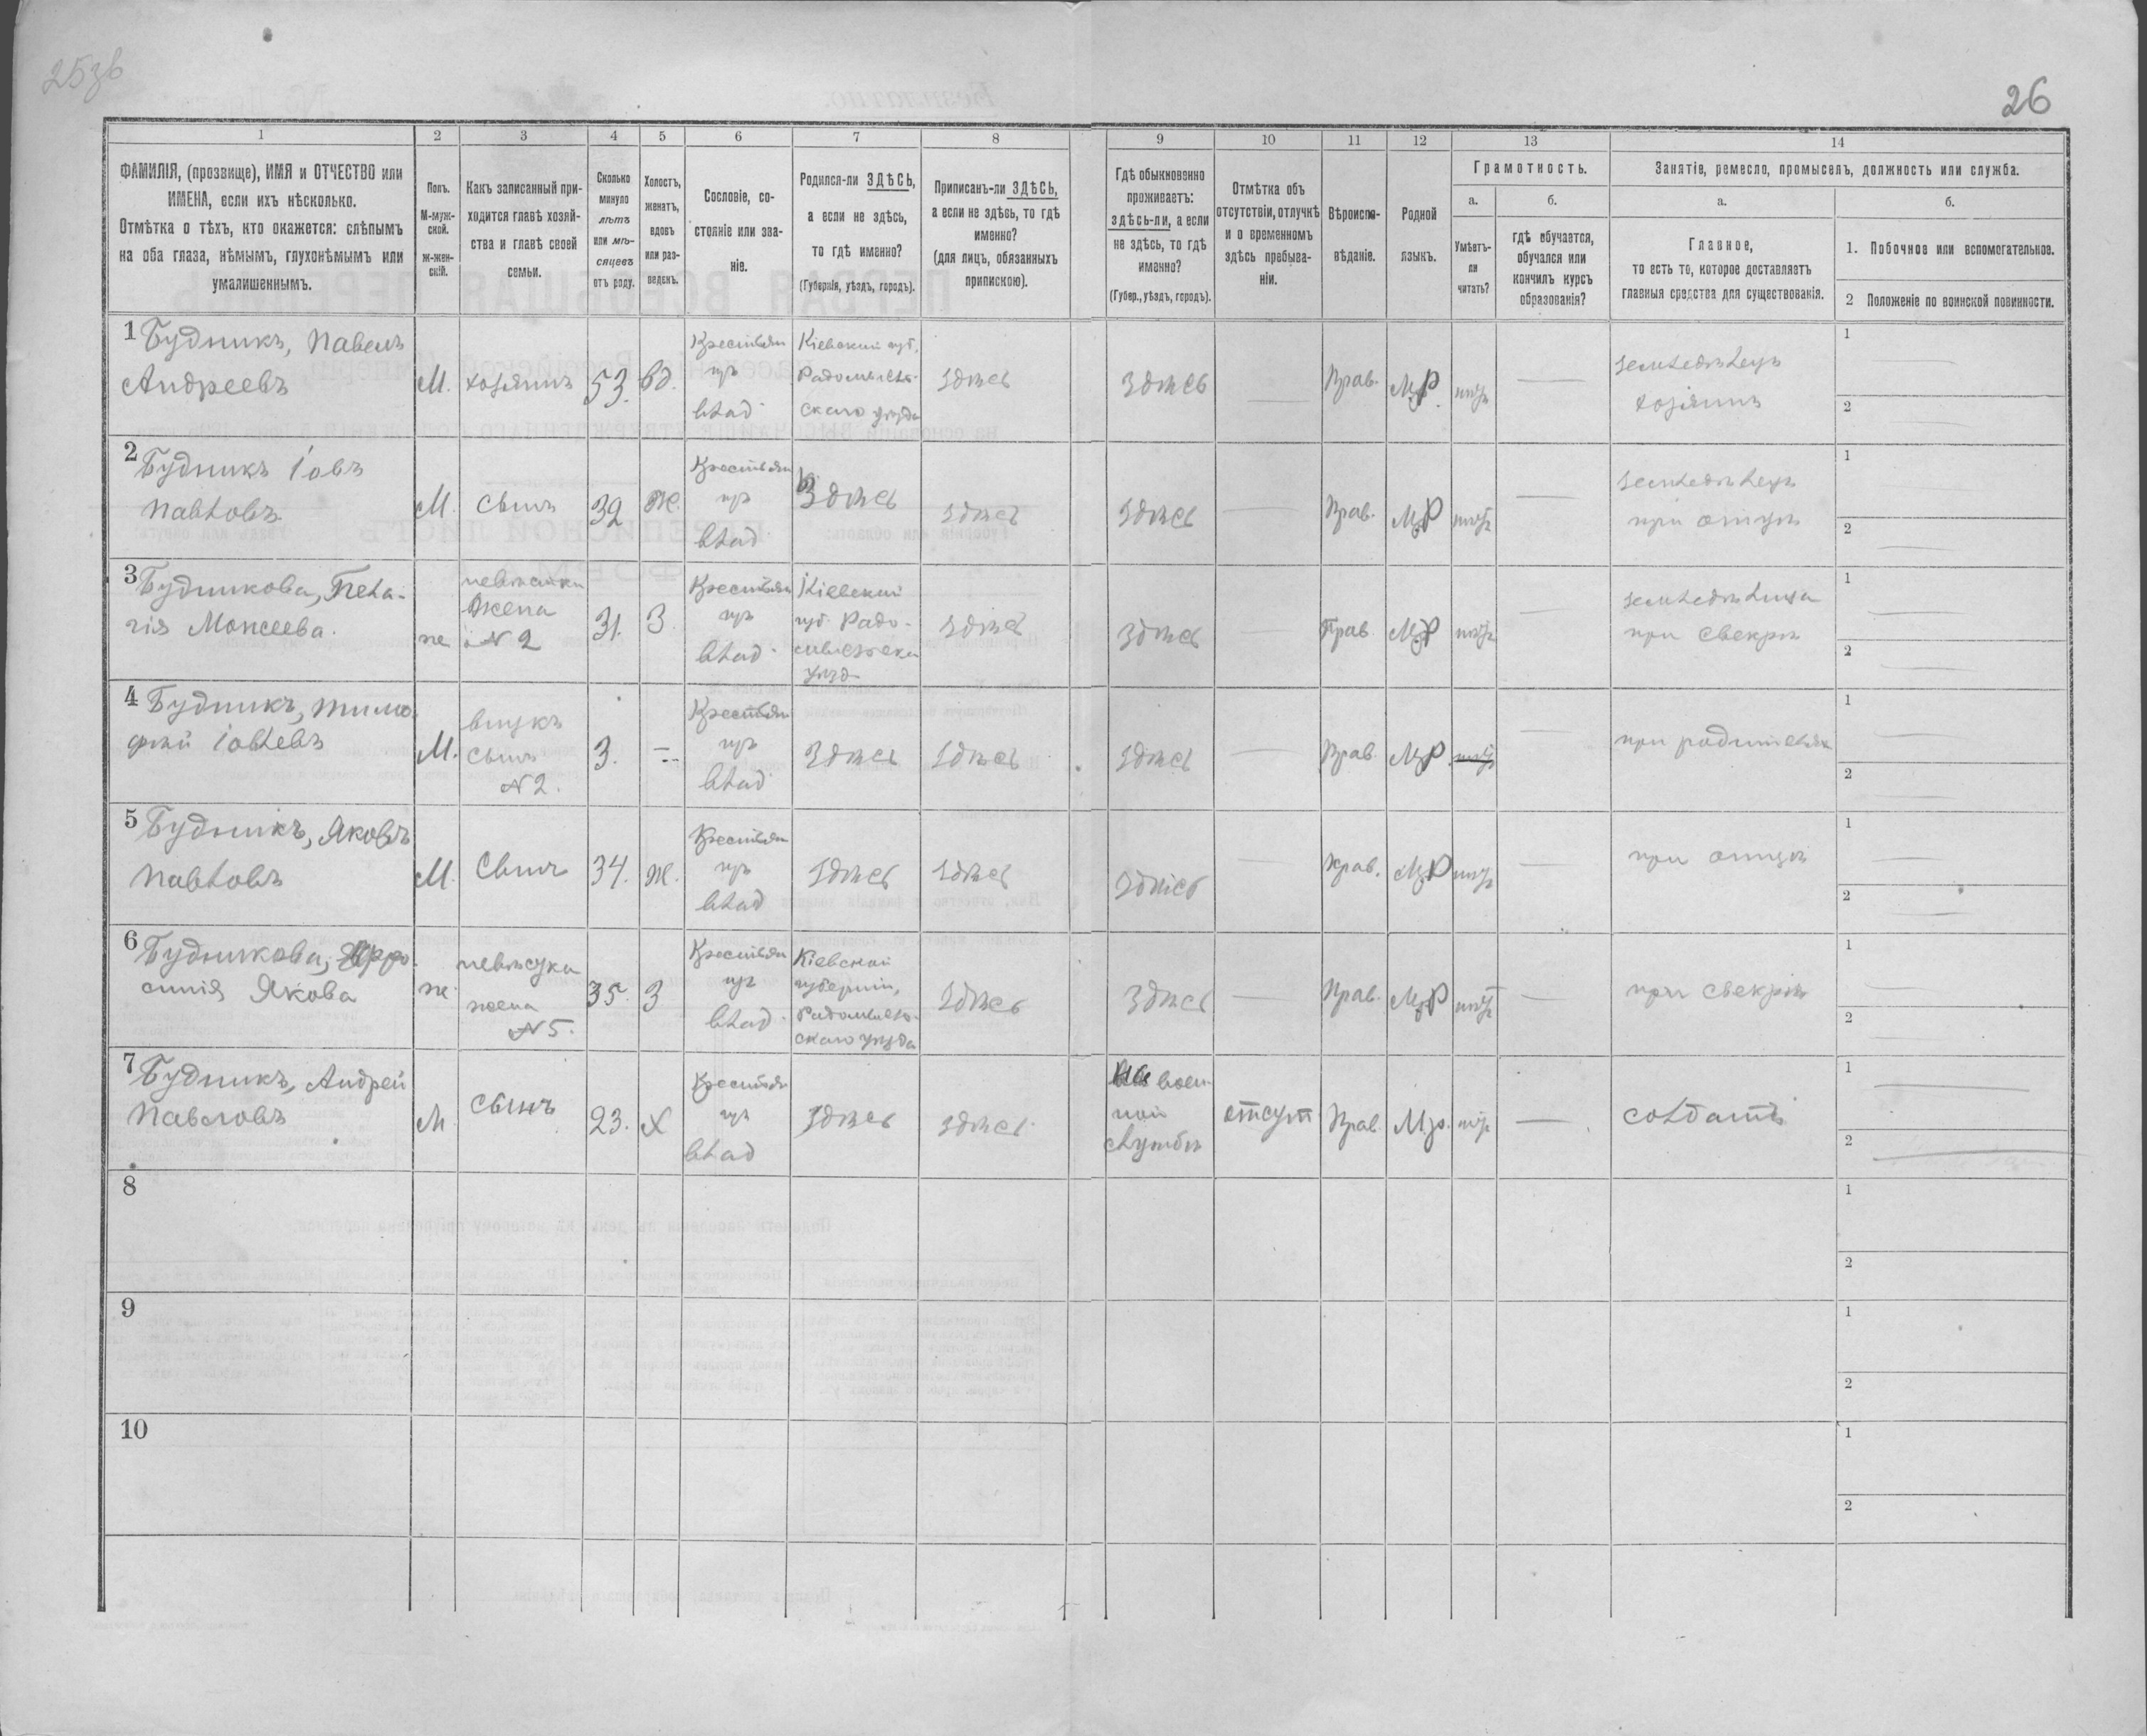 25зв
26
1 2 3 4 5 6 7 8 9 10 11 12 13 14
ФАМИЛІЯ, (прозвище), ИМЯ и ОТЧЕСТВО или
ИМЕНА, если ихъ нѣсколько.
Отмѣтка о тѣхъ, кто окажется: слѣпымъ
на оба глаза, нѣмымъ, глухонѣмымъ или
умалишеннымъ.
Полъ.
М-муж-
ской.
Ж-жен-
скій.
Какъ записанный при-
ходится главѣ хозяй-
ства и главѣ своей
семьи.
Сколько
минуло
лѣтъ
или мѣ-
сяцевъ
отъ роду.
Холостъ,
женатъ,
вдовъ
или раз-
веденъ.
Сословіе, со-
стояніе или зва-
ніе.
Родился-ли ЗДѢСЬ,
а если не здѣсь,
то гдѣ именно?
(Губернія, уѣздъ, городъ).
Приписанъ-ли ЗДѢСЬ,
а если не здѣсь, то гдѣ
именно?
(для лицъ, обязанныхъ
припискою).
Гдѣ обыкновенно
проживаетъ:
здѣсь-ли, а если
не здѣсь, то гдѣ
именно?
(Губер., уѣздъ, городъ).
Отмѣтка объ
отсутствіи, отлучкѣ
и о временномъ
здѣсь пребыва-
ніи.
Вѣроиспо-
вѣданіе.
Родной
языкъ.
Грамотность.
а.
Умѣетъ-
ли
читать?
б.
гдѣ обучается,
обучался или
кончилъ курсъ
образованія?
Занятіе, ремесло, промыселъ, должность или служба.
а.
Главное,
то есть то, которое доставляетъ
главныя средства для существованія.
б.
1. Побочное или вспомогательное.
2 Положеніе по воинской повинности.
1 Будникъ, Павелъ
Андреевъ
М. хозяинъ 53. вд.
Крестьян
изъ
влад
Кіевской губ,
Радомысль-
скаго уѣзда
здѣсь здѣсь — Прав. Мр. нѣтъ —
земледѣлецъ
хозяинъ
1 —
2 —
2 Будникъ Іовъ
Павловъ
М. сынъ 32 ж.
Крестьян
изъ
влад
здѣсь здѣсь здѣсь — Прав. Мр нѣтъ —
земледѣлецъ
при отцѣ
1 —
2 —
3 Будникова, Пела-
гія Моисеева.
ж
невѣстка
жена
№ 2
31. З
Крестьян
изъ
влад
Кіевской
губ. Радо-
мысльска
уѣзд
здѣсь здѣсь — Прав. Мр нѣтъ —
земледѣлица
при свекрѣ
1 —
2 —
4 Будникъ, Тимо-
фѣй Іовлевъ
М.
внукъ
сынъ
№ 2.
3. —
Крестьян
изъ
влад
здѣсь здѣсь здѣсь — Прав Мр. нѣтъ —
при родителях
1 —
2 —
5 Будникъ, Яковъ
Павловъ
М. Сынъ 34. ж.
Крестьян
изъ
влад
здѣсь здѣсь здѣсь — Прав. Мр нѣтъ —
при отцѣ
1 —
2 —
6 Будникова, Ефро-
синія Якова
ж
невѣстка
жена
№ 5.
35. З
Крестьян
изъ
влад
Кіевской
губерніи,
Радомысль-
скаго уѣзда
здѣсь здѣсь — Прав. Мр нѣтъ —
при свекрѣ
1 —
2 —
7 Будникъ, Андрей
Павловъ
М сынъ 23. Х
Крестьян
изъ
влад
здѣсь здѣсь
на воен-
ной
службѣ
отсут Прав. Мр. нѣт —
солдатъ
1 —
2 —
8
1
2
9
1
2
10
1
2